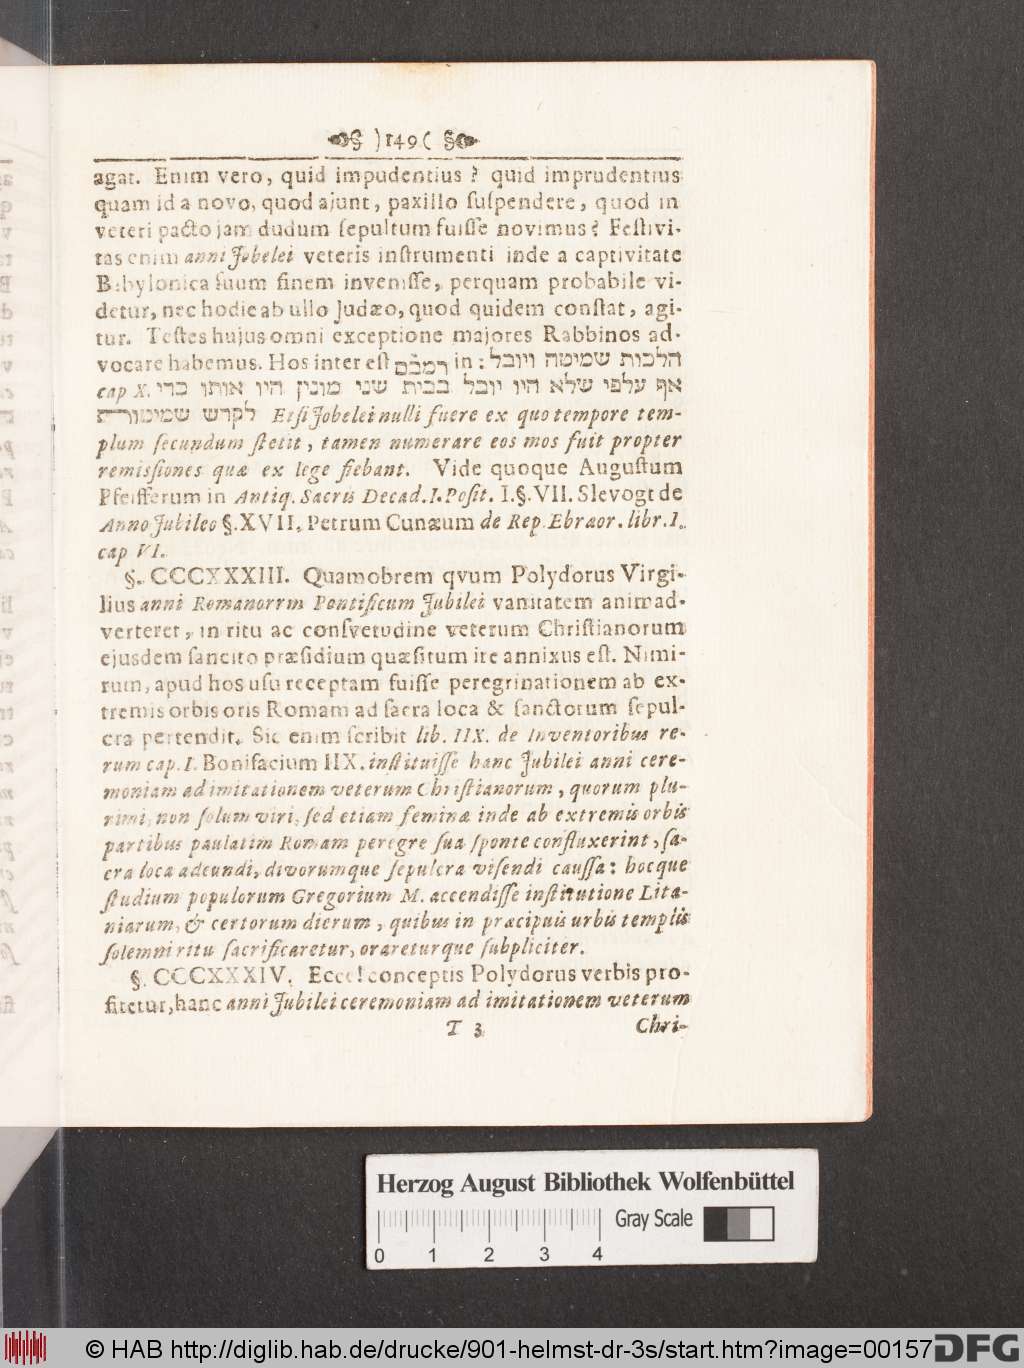 )149(
agat. Enim vero, quid impudentius? quid imprudentius
quam id a novo, quod ajunt, paxillo ſuſpendere, quod in
veteri pacto jam dudum ſepultum fuiſſe novimus? Feſtivi-
tas enim anni Jobelei veteris inſtrumenti inde a captivitate
Babylonica ſuum finem inveniſſe, perquam probabile vi-
detur, nec hodie ab ullo Judæo, quod quidem conſtat, agi-
tur. Teſtes hujus omni exceptione majores Rabbinos ad-
vocare habemus. Hos inter eſt רמבם in: הלכות שמיטה ויובל
cap X. אף עלפי שלא היו יובל בבית שני מונין היו אותו כדי
לקדש שמיטות Etſi Jobelei nulli fuere ex quo tempore tem-
plum ſecundum ſtetit, tamen numerare eos mos fuit propter
remiſſiones quæ ex lege fiebant. Vide quoque Auguſtum
Pfeifferum in Antiq. Sacris Decad. I. Poſit. I. §. VII. Slevogt de
Anno Jubileo §. XVII. Petrum Cunæum de Rep. Ebraor. libr. I.
cap VI.
§. CCCXXXIII. Quamobrem qvum Polydorus Virgi-
lius anni Romanorrm Pontificum Jubilei vanitatem animad-
verteret, in ritu ac conſvetudine veterum Chriſtianorum
ejusdem ſancito præſidium quæſitum ire annixus eſt. Nimi-
rum, apud hos uſu receptam fuiſſe peregrinationem ab ex-
tremis orbis oris Romam ad ſacra loca & ſanctorum ſepul-
cra pertendit. Sic enim ſcribit lib. IIX. de Inventoribus re-
rum cap. I. Bonifacium IIX. inſtituiſſe hanc Jubilei anni cere-
moniam ad imitationem veterum Chriſtianorum, quorum plu-
rimi, non ſolum viri, ſed etiam feminæ inde ab extremis orbis
partibus paulatim Romam peregre ſua ſponte confluxerint, ſa-
cra loca adeundi, divorumque ſepulcra viſendi cauſſa: hocque
ſtudium populorum Gregorium M. accendiſſe inſtitutione Lita-
niarum, & certorum dierum, quibus in præcipuis urbis templis
ſolemni ritu ſacrificaretur, orareturque ſubpliciter.
§. CCCXXXIV. Ecce! conceptis Polydorus verbis pro-
fitetur, hanc anni Jubilei ceremoniam ad imitationem veterum
T 3 Chri-
Herzog August Bibliothek Wolfenbüttel
Gray Scale
0 1 2 3 4
© HAB http://diglib.hab.de/drucke/901-helmst-dr-3s/start.htm?image=00157
DFG